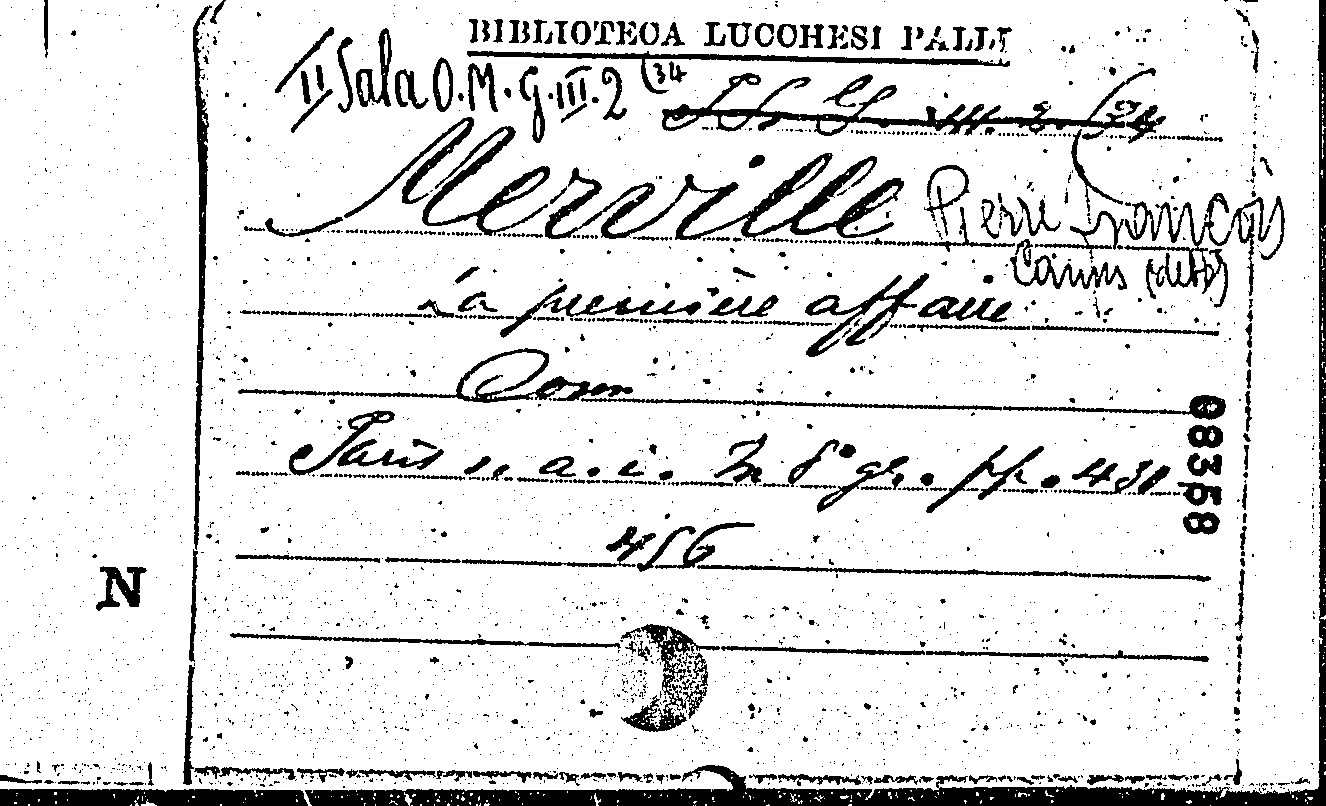 BIBLIOTECA LUCCHESI PALLI
II Sala O.M.G.III.2 (34
Merville Pierre François
Camus (detto)
La première affaire
Com
Paris s. a. i. In 8° gr. pp. 430
456
08358
N